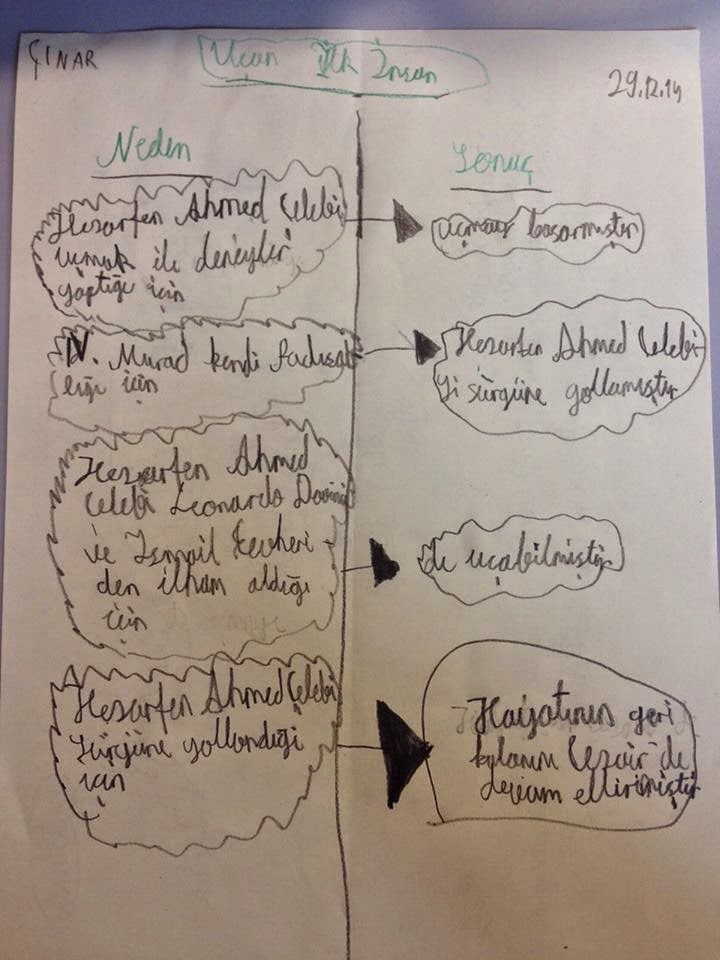 ÇINAR
Uçan İlk İnsan
29.12.14
Neden
Sonuç
Hezarfen Ahmed Çelebi
uçmak ile deneyler
yaptığı için
uçmayı başarmıştır
IV. Murad kendi Padişah
lığı için
Hezarfen Ahmed Çelebi
yi sürgüne yollamıştır
Hezarfen Ahmed
Çelebi Leonardo Davinci
ve İsmail Cevheri-
den ilham aldığı
için
de uçabilmiştir
Hezarfen Ahmed Çelebi
Sürgüne yollandığı
için
Hayatının geri
kalanını Cezair'de
devam ettirmiştir